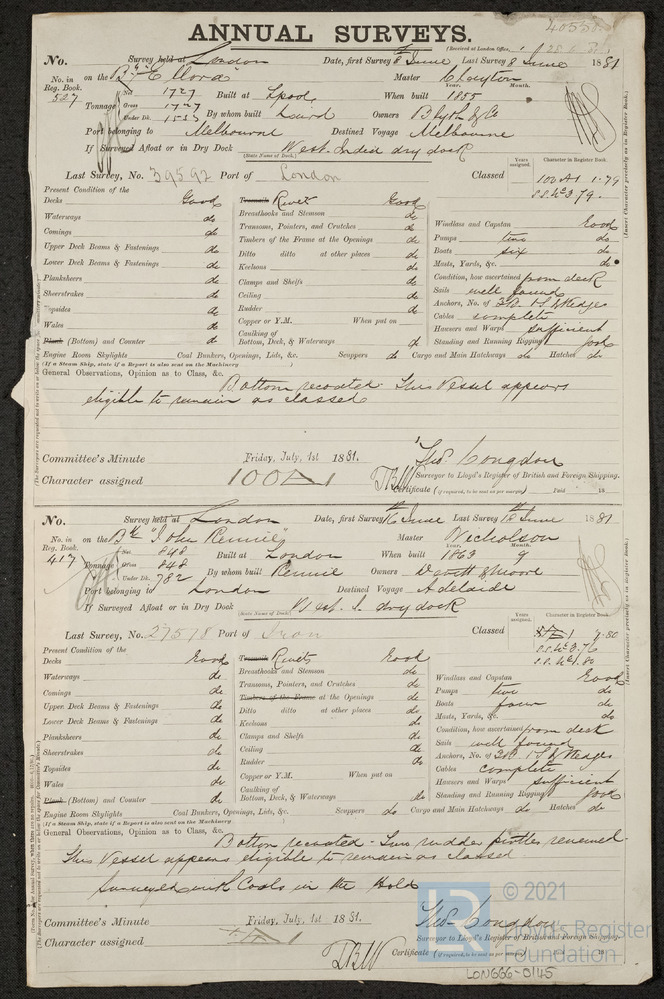 ANNUAL SURVEYS.
(Received at London Office,
No. Survey held at London Date, first Survey 8th June Last Survey 8 June 1881
No. in Reg. Book. 527 on the Bk "Ellora" Master Clayton
Tonnage Net 1727 Gross 1727 Under Dk. Built at Lpool When built Year. 1855 Month.
By whom built Laird Owners Blyth & Co
Port belonging to Melbourne Destined Voyage Melbourne
If Surveyed Afloat or in Dry Dock West India dry dock
(State Name of Dock.)
Years assigned. Character in Register Book.
Last Survey, No. 39592 Port of London Classed 100 A1 1.79
Present Condition of the
Decks Good Treenails Rivets Good
Waterways do Breasthooks and Stemson do
Comings do Transoms, Pointers, and Crutches do Windlass and Capstan Good
Upper Deck Beams & Fastenings do Timbers of the Frame at the Openings do Pumps two do
Lower Deck Beams & Fastenings do Ditto ditto at other places do Boats six do
Planksheers do Keelsons do Masts, Yards, &c. do
Sheerstrakes do Clamps and Shelfs do Condition, how ascertained from deck
Topsides do Ceiling do Sails well found
Wales do Rudder do Anchors, No. of 3B 1S & Kedges
Plank (Bottom) and Counter do Copper or Y.M. When put on Cables complete
Caulking of Bottom, Deck, & Waterways do Hawsers and Warps sufficient
Standing and Running Rigging good
Engine Room Skylights Coal Bunkers, Openings, Lids, &c. Scuppers do Cargo and Main Hatchways do Hatches do
(If a Steam Ship, state if a Report is also sent on the Machinery )
General Observations, Opinion as to Class, &c.
Bottom recoated. This Vessel appears
eligible to remain as classed
Committee's Minute Friday, July, 1st 1881. Thos. Congdon
Character assigned 100A1 Surveyor to Lloyd's Register of British and Foreign Shipping.
Certificate (if required, to be sent as per margin) Paid 18
No. Survey held at London Date, first Survey 16th June Last Survey 18th June 1881
No. in Reg. Book. 417 on the Bk "John Rennie" Master Nicholson
Tonnage Net 848 Gross 848 Under Dk. 782 Built at London When built Year. 1863 Month. 9
By whom built Rennie Owners Devitt & Moore
Port belonging to London Destined Voyage Adelaide
If Surveyed Afloat or in Dry Dock West I. dry dock
(State Name of Dock.)
Years assigned. Character in Register Book.
Last Survey, No. 27518 Port of Iron Classed
Present Condition of the
Decks Good Treenails Rivets Good
Waterways do Breasthooks and Stemson do Windlass and Capstan Good
Comings do Transoms, Pointers, and Crutches do Pumps two do
Upper Deck Beams & Fastenings do Timbers of the Frame at the Openings do Boats four do
Lower Deck Beams & Fastenings do Ditto ditto at other places do Masts, Yards, &c. do
Planksheers do Keelsons do Condition, how ascertained from deck
Sheerstrakes do Clamps and Shelfs do Sails well found
Topsides do Ceiling do Anchors, No. of 3B 1S & Kedges
Wales do Rudder do Cables complete
Plank (Bottom) and Counter do Copper or Y.M. When put on Hawsers and Warps sufficient
Caulking of Bottom, Deck, & Waterways do Standing and Running Rigging good
Engine Room Skylights Coal Bunkers, Openings, Lids, &c. Scuppers do Cargo and Main Hatchways do Hatches do
(If a Steam Ship, state if a Report is also sent on the Machinery )
General Observations, Opinion as to Class, &c.
Bottom recoated. Two rudder pintles renewed.
This Vessel appears eligible to remain as classed.
Surveyed with Coals in the Hold
Committee's Minute Friday, July, 1st 1881. Thos. Congdon
Character assigned Surveyor to Lloyd's Register of British and Foreign Shipping.
Certificate (if required, to be sent as per margin)
LR © 2021
Lloyd's Register
Foundation
LON666-0145